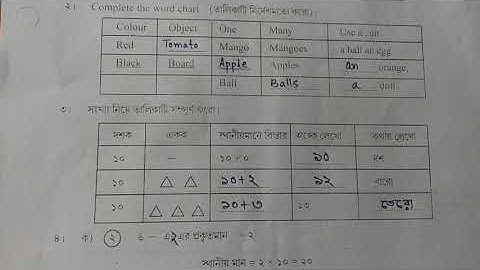 ২। Complete the word chart (তালিকাটি নির্দেশমতো করো)।
Colour Object One Many Use a , an
Red Tomato Mango Mangoes a ball an egg
Black Board Apple Apples an orange,
Ball Balls a doll
৩। সংখ্যা নিয়ে তালিকাটি সম্পূর্ণ করো।
দশক একক স্থানীয়মানে বিস্তার অঙ্কে লেখো কথায় লেখো
১০ — ১০ + ০ ১০ দশ
১০ ১০+২ ১২ বারো
১০ ১০+৩ ১০ তেরো
৪। ক) ২ ৬ — এর প্রকৃতমান = ২
স্থানীয় মান = ২ × ১০ = ২০